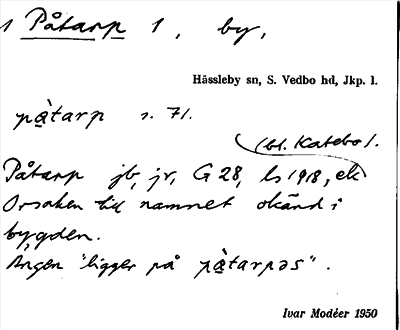 1 Påtarp 1, by,
Hässleby sn, S. Vedbo hd, Jkp. l.
pằtarp s. 71.
(bl. Katebo).
Påtarp jb, jr, G 28, ls 1918, ek
Orsaken till namnet okänd i
bygden.
Ängen "ligger på pằtarpəs".
Ivar Modéer 1950